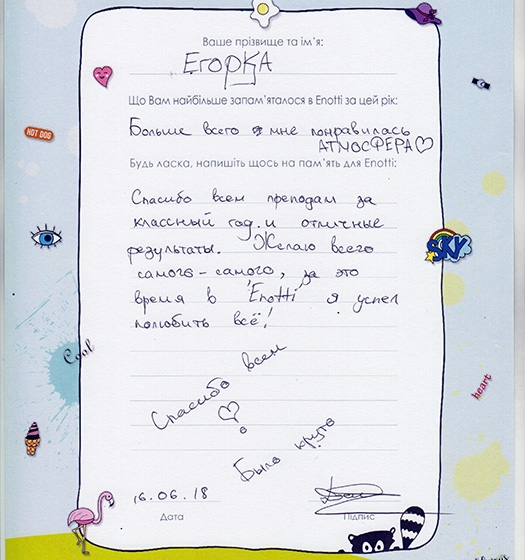 Ваше прізвище та ім'я:
ЕгорКА
Що Вам найбільше запам'яталося в Enotti за цей рік:
Больше всего мне понравилась
АТМОСФЕРА
Будь ласка, напишіть щось на пам'ять для Enotti:
HOT DOG
Спасибо всем преподам за
классный год. и отличные
результаты. Желаю всего
SKY
самого-самого, за это
время в "Enotti" я успел
полюбить всё!
Cool
Спасибо всем
heart
Было круто
16.06.18
Дата
Підпис